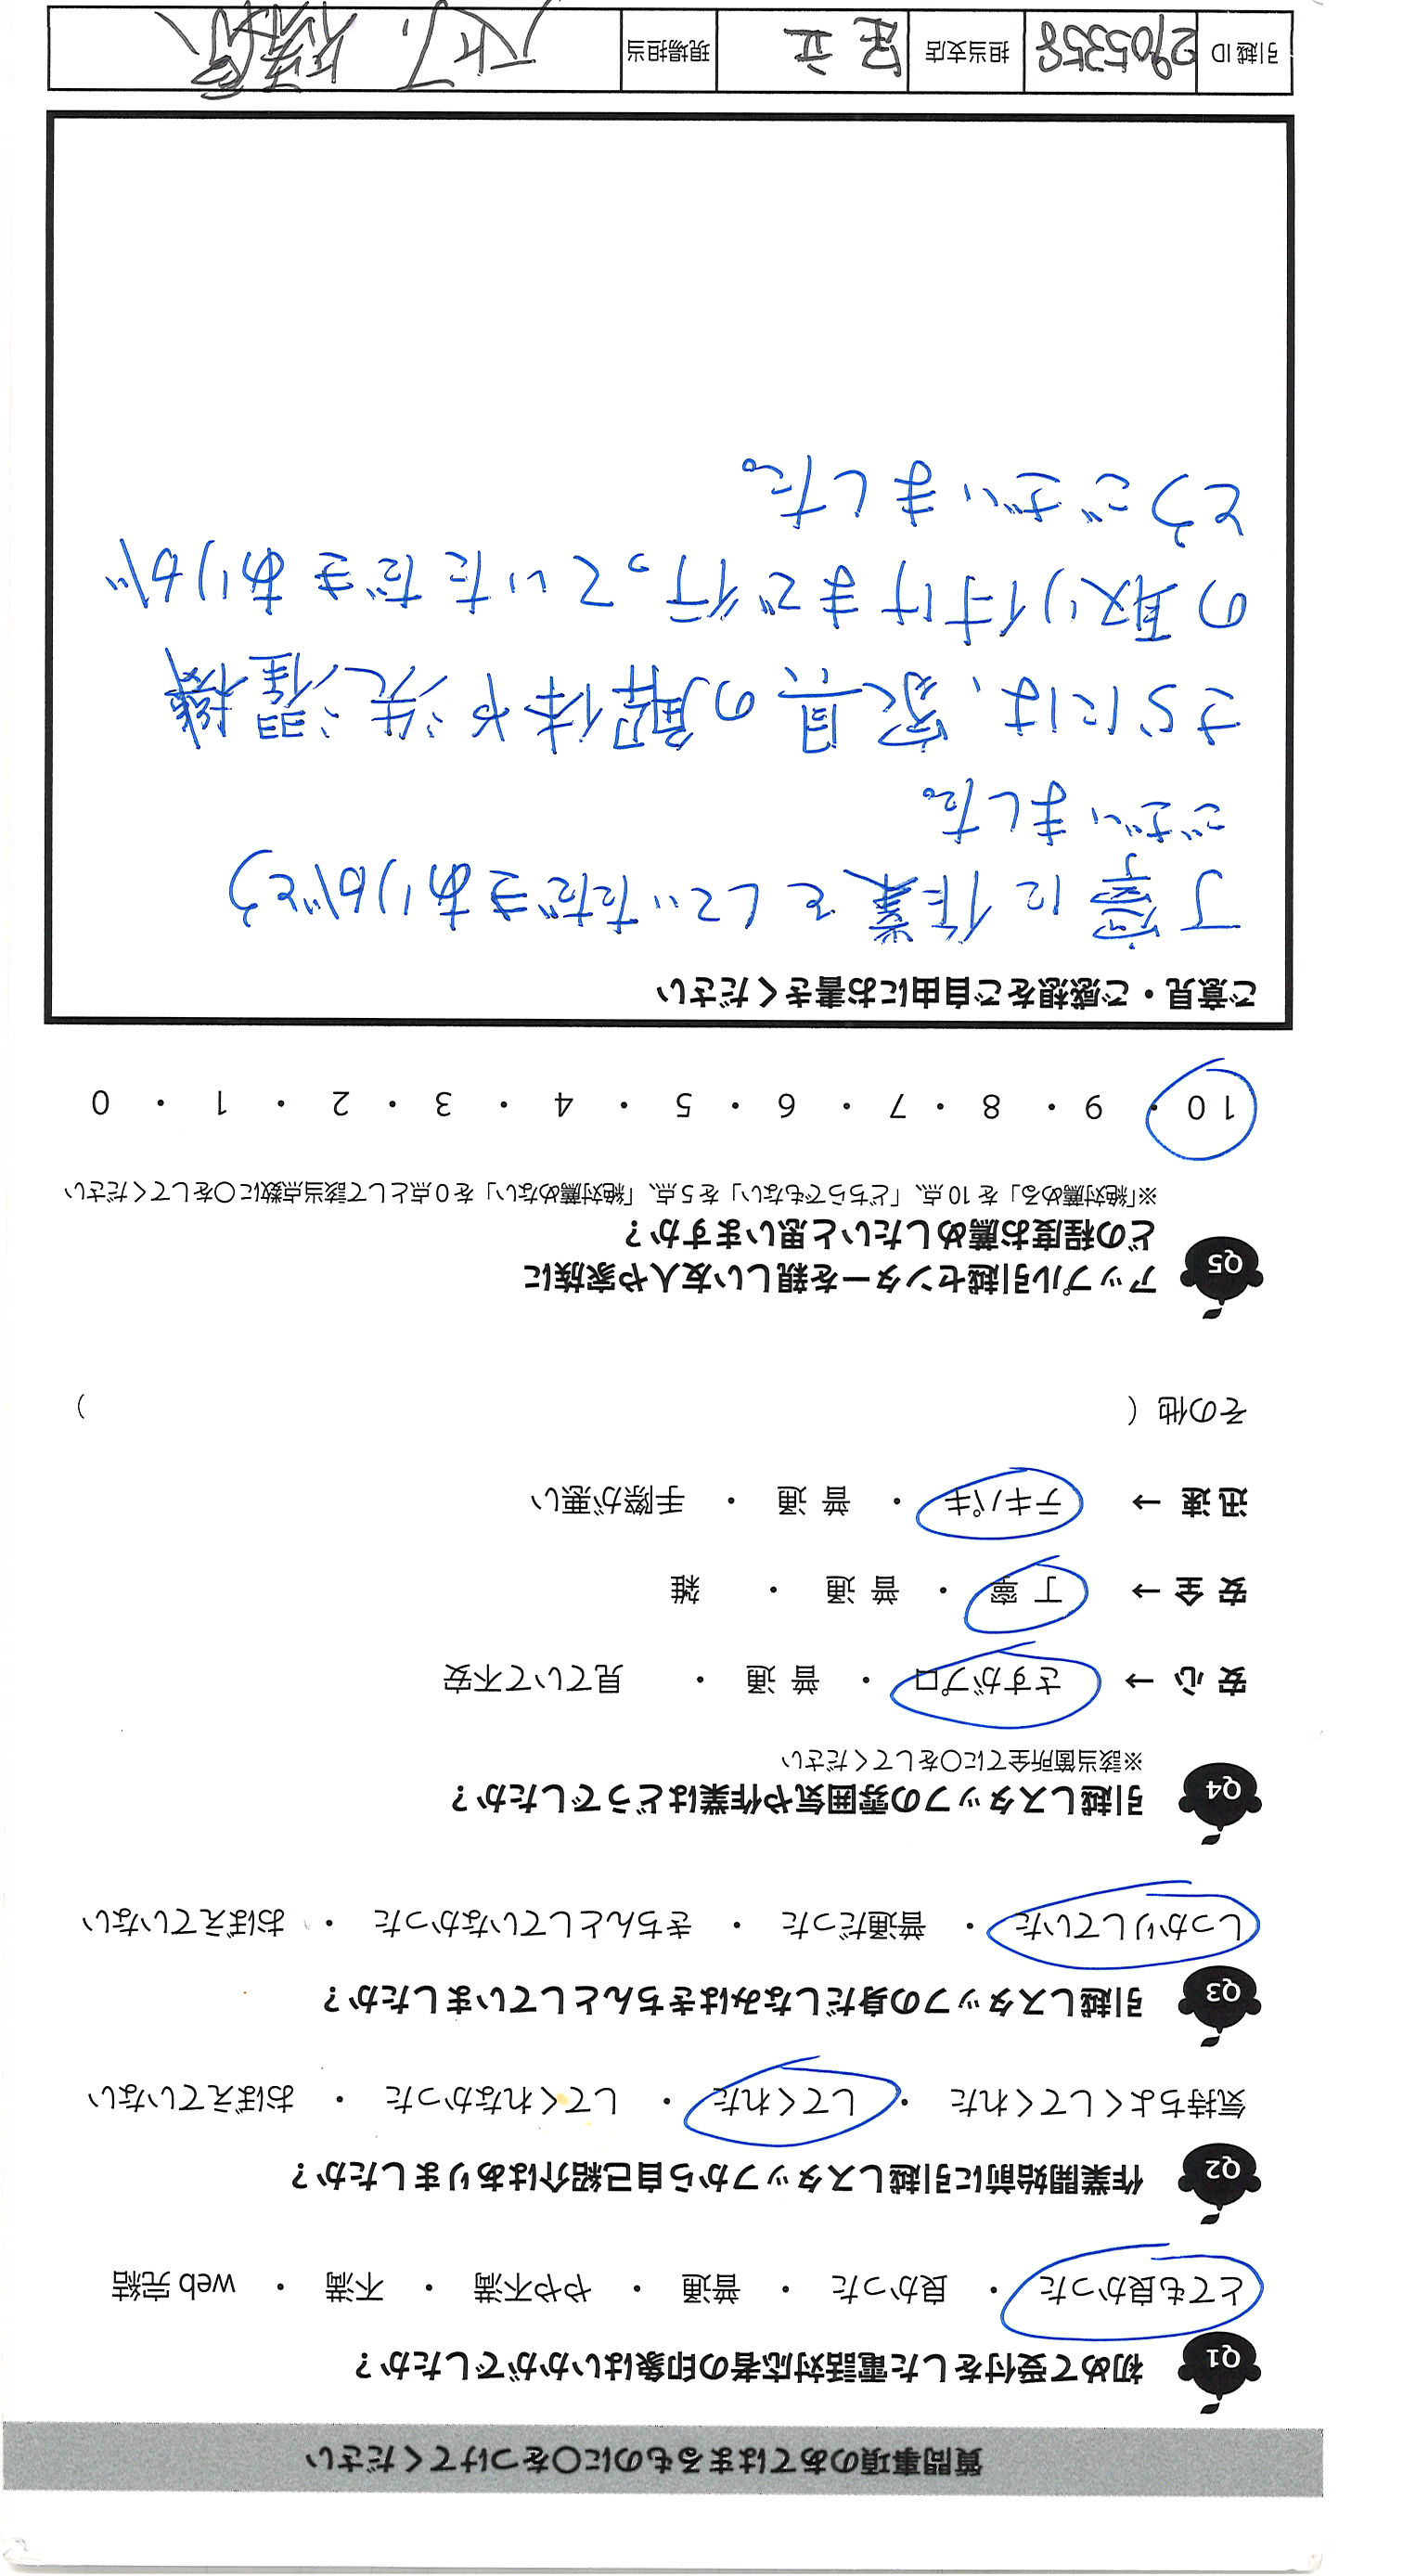 質問事項のあてはまるものに〇をつけてください
Q1 初めて受付をした電話対応者の印象はいかがでしたか？
とても良かった ・ 良かった ・ 普通 ・ やや不満 ・ 不満 ・ web 完結
Q2 作業開始前に引越しスタッフから自己紹介はありましたか？
気持ちよくしてくれた ・ してくれた ・ してくれなかった ・ おぼえていない
Q3 引越しスタッフの身だしなみはきちんとしていましたか？
しっかりしていた ・ 普通だった ・ きちんとしていなかった ・ おぼえていない
Q4 引越しスタッフの雰囲気や作業はどうでしたか？
※該当箇所全てに〇をしてください
安 心 → さすがプロ ・ 普 通 ・ 見ていて不安
安 全 → 丁 寧 ・ 普 通 ・ 雑
迅 速 → テキパキ ・ 普 通 ・ 手際が悪い
その他（ ）
Q5 アップル引越センターを親しい友人や家族に
どの程度お薦めしたいと思いますか？
※「絶対薦める」を 10 点、「どちらでもない」を 5 点、「絶対薦めない」を 0 点として該当点数に〇をしてください
10 ・ 9 ・ 8 ・ 7 ・ 6 ・ 5 ・ 4 ・ 3 ・ 2 ・ 1 ・ 0
ご意見・ご感想をご自由にお書きください
丁寧に作業をしていただきありがとう
ございました。
さらには、家具の解体や洗濯機
の取り付けまで行っていただきありが
とうございました。
引越 ID 2905358 担当支店 足立 現場担当